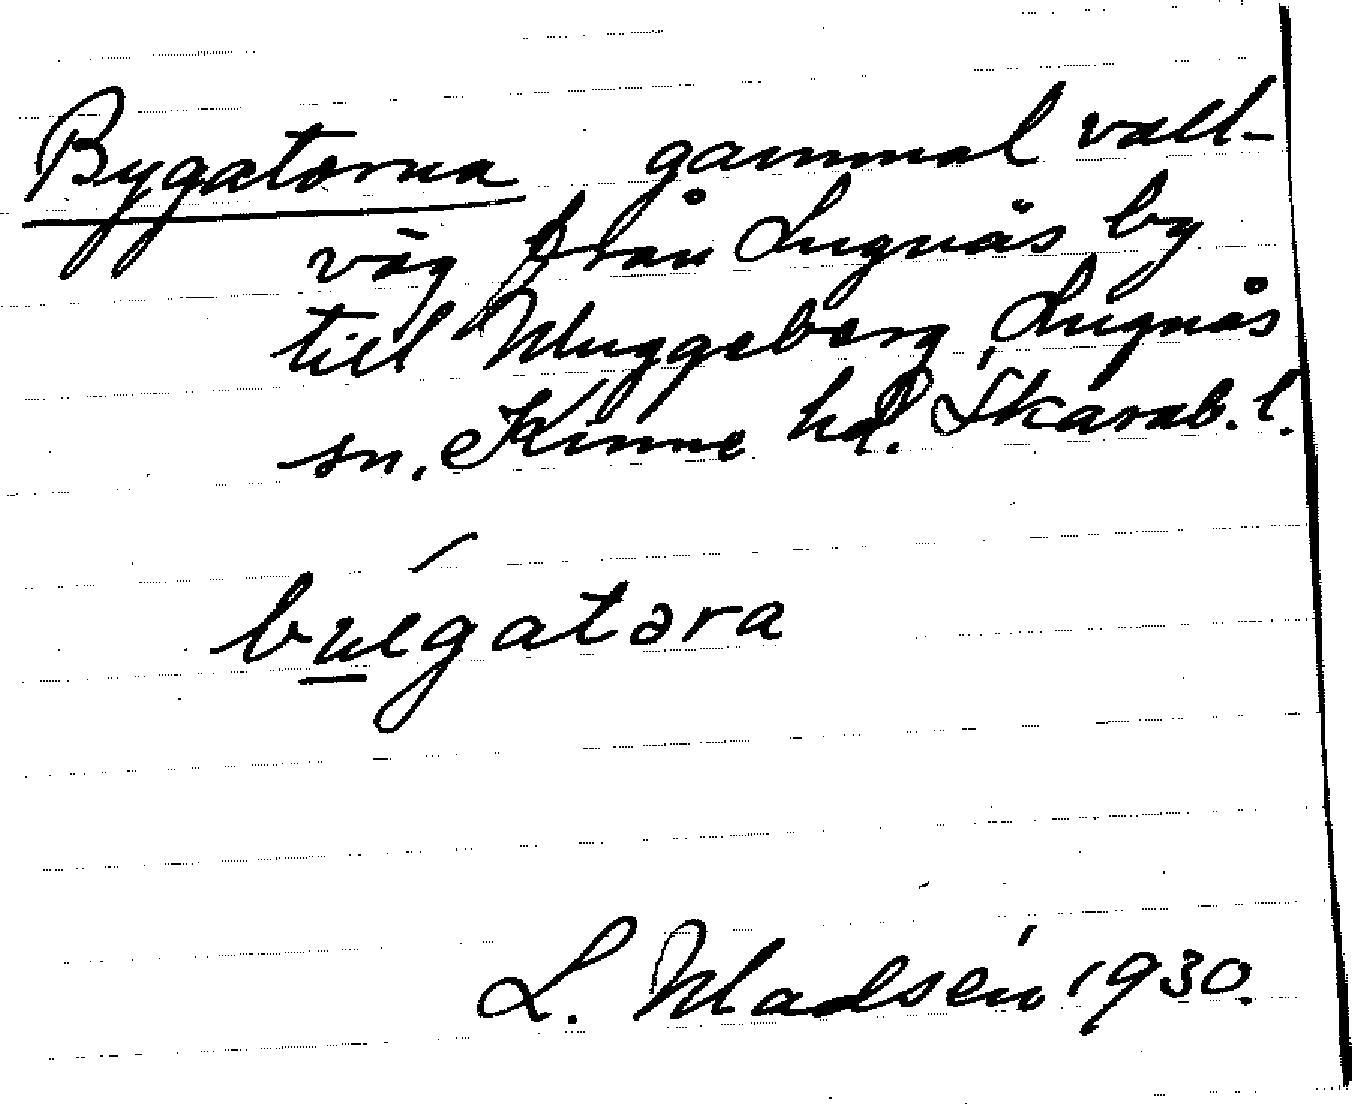 Bygatorna gammal vall-
väg från Lugnås by
till Muggeberg, Lugnås
sn. Kinne hd. Skarab. l.
bųégatəra
L. Madsén 1930.